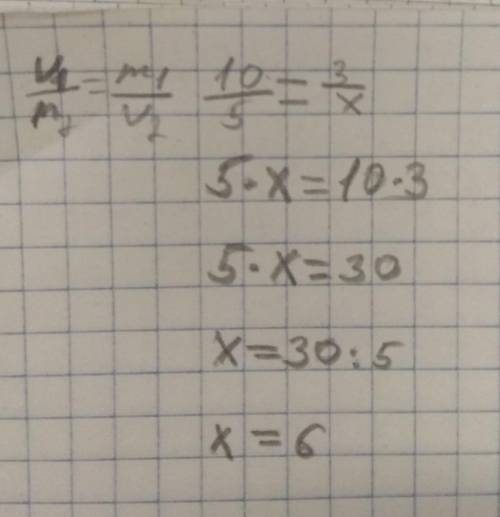 V₁/m₂ = m₁/V₂ 10/5 = 3/x
5·x=10·3
5·x=30
x=30:5
x=6